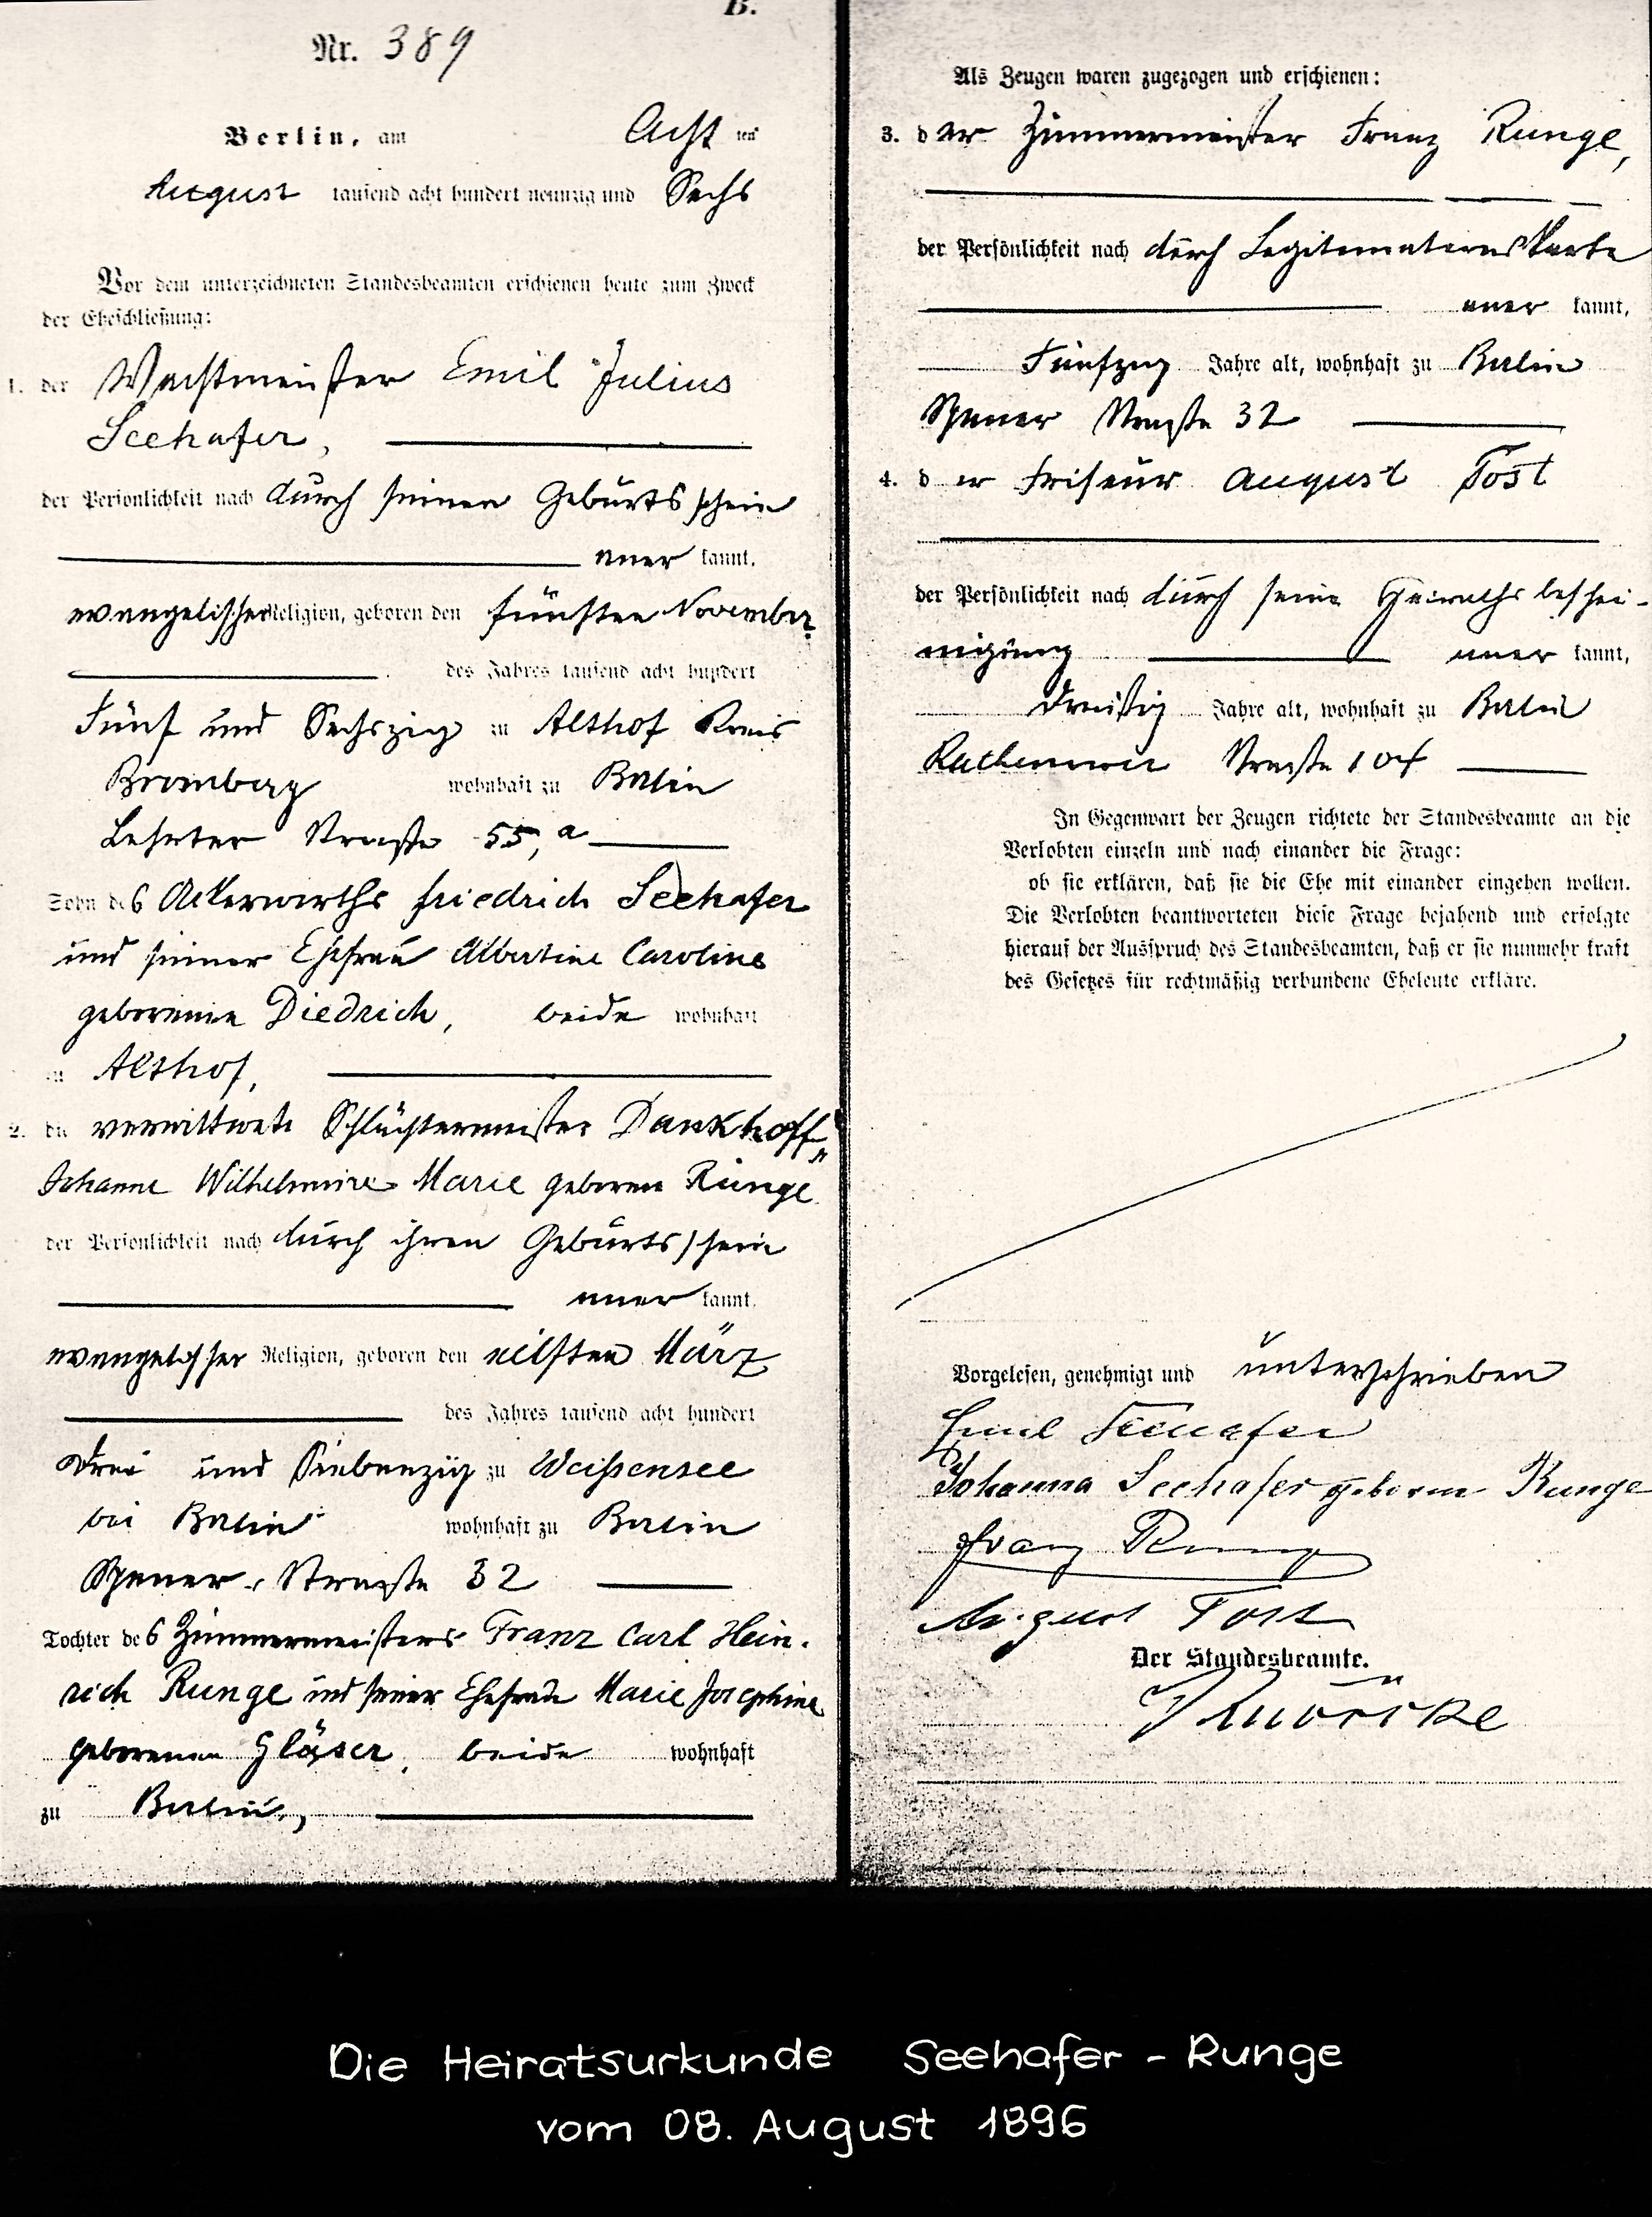 B.
Nr. 389
Berlin, am Acht ten
August tausend acht hundert neunzig und Sechs
Vor dem unterzeichneten Standesbeamten erschienen heute zum Zweck
der Eheschließung:
1. der Wachtmeister Emil Julius
Seehafer,
der Persönlichkeit nach durch seinen Geburtsschein
aner kannt,
evangelischer Religion, geboren den fünften November
des Jahres tausend acht hundert
Fünf und Sechszig zu Althof Kreis
Bromberg wohnhaft zu Berlin
Lehrter Straße 55, a
Sohn des Ackerwirths Friedrich Seehafer
und seiner Ehefrau Albertine Caroline
geborenen Diedrich, beide wohnhaft
zu Althof,
2. die verwittwete Schlächtermeister Dankhoff,
Johanne Wilhelmine Marie geborene Runge
der Persönlichkeit nach durch ihren Geburtsschein
aner kannt,
evangelischer Religion, geboren den eilften März
des Jahres tausend acht hundert
Drei und Siebenzig zu Weißensee
bei Berlin wohnhaft zu Berlin
Spener-Straße 32
Tochter des Zimmermeisters Franz Carl Hein-
rich Runge und seiner Ehefrau Marie Josephine
geborenen Gläser, beide wohnhaft
zu Berlin,
Als Zeugen waren zugezogen und erschienen:
3. der Zimmermeister Franz Runge,
der Persönlichkeit nach durch Legitimationskarte
aner kannt,
Fünfzig Jahre alt, wohnhaft zu Berlin
Spener Straße 32
4. d er Friseur August Tost
der Persönlichkeit nach durch seine Heirathsbeschei-
nigung aner kannt,
Dreißig Jahre alt, wohnhaft zu Berlin
Rathenower Straße 104
In Gegenwart der Zeugen richtete der Standesbeamte an die
Verlobten einzeln und nach einander die Frage:
ob sie erklären, daß sie die Ehe mit einander eingehen wollen.
Die Verlobten beantworteten diese Frage bejahend und erfolgte
hierauf der Ausspruch des Standesbeamten, daß er sie nunmehr kraft
des Gesetzes für rechtmäßig verbundene Eheleute erkläre.
Vorgelesen, genehmigt und unterschrieben
Emil Seehafer
Johanna Seehafer geborene Runge
Franz Runge
August Tost
Der Standesbeamte.
Die Heiratsurkunde Seehafer - Runge
vom 08. August 1896